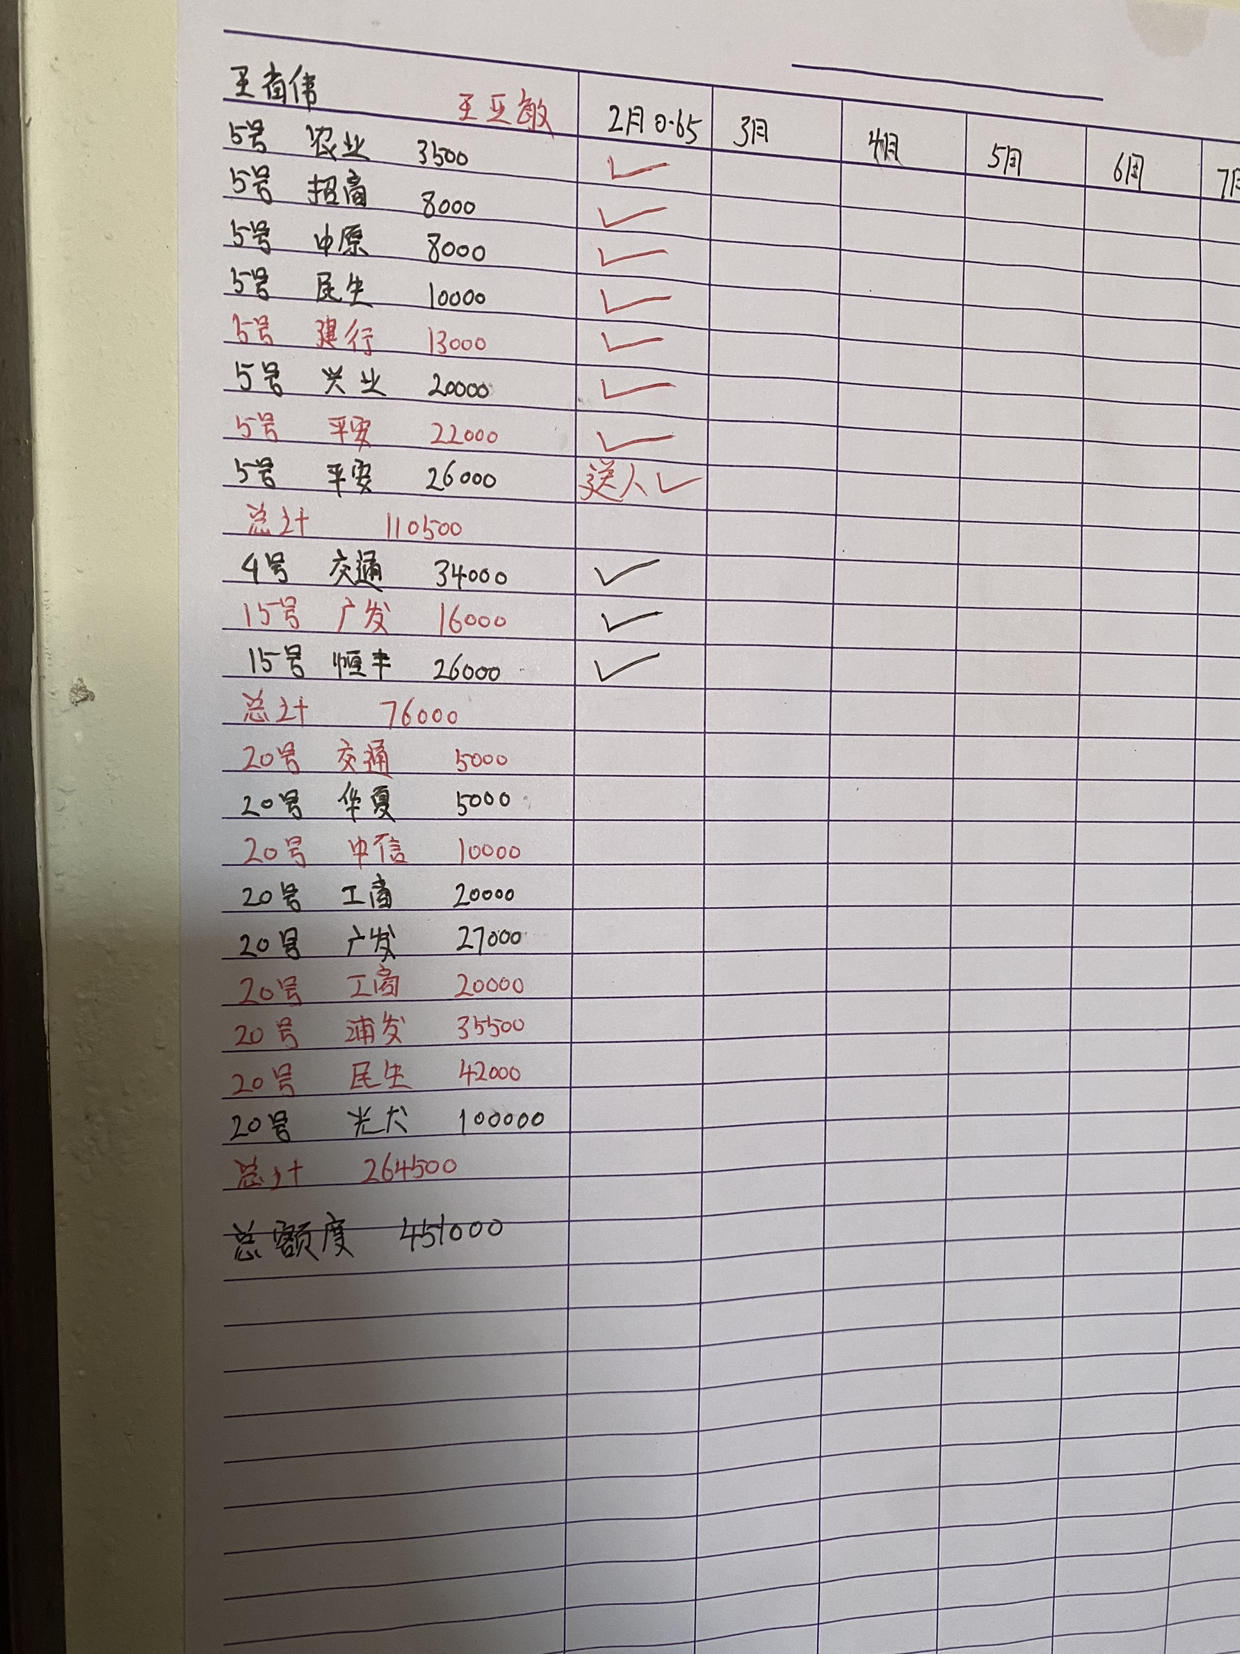 王省伟 王亚敏 2月0.65 3月 4月 5月 6月 7月
5号 农业 3500 ✓
5号 招商 8000 ✓
5号 中原 8000 ✓
5号 民生 10000 ✓
5号 建行 13000 ✓
5号 兴业 20000 ✓
5号 平安 22000 ✓
5号 平安 26000 送人✓
总计 110500
4号 交通 34000 ✓
15号 广发 16000 ✓
15号 恒丰 26000 ✓
总计 76000
20号 交通 5000
20号 华夏 5000
20号 中信 10000
20号 工商 20000
20号 广发 27000
20号 工商 20000
20号 浦发 35500
20号 民生 42000
20号 光大 100000
总计 264500
总额度 451000